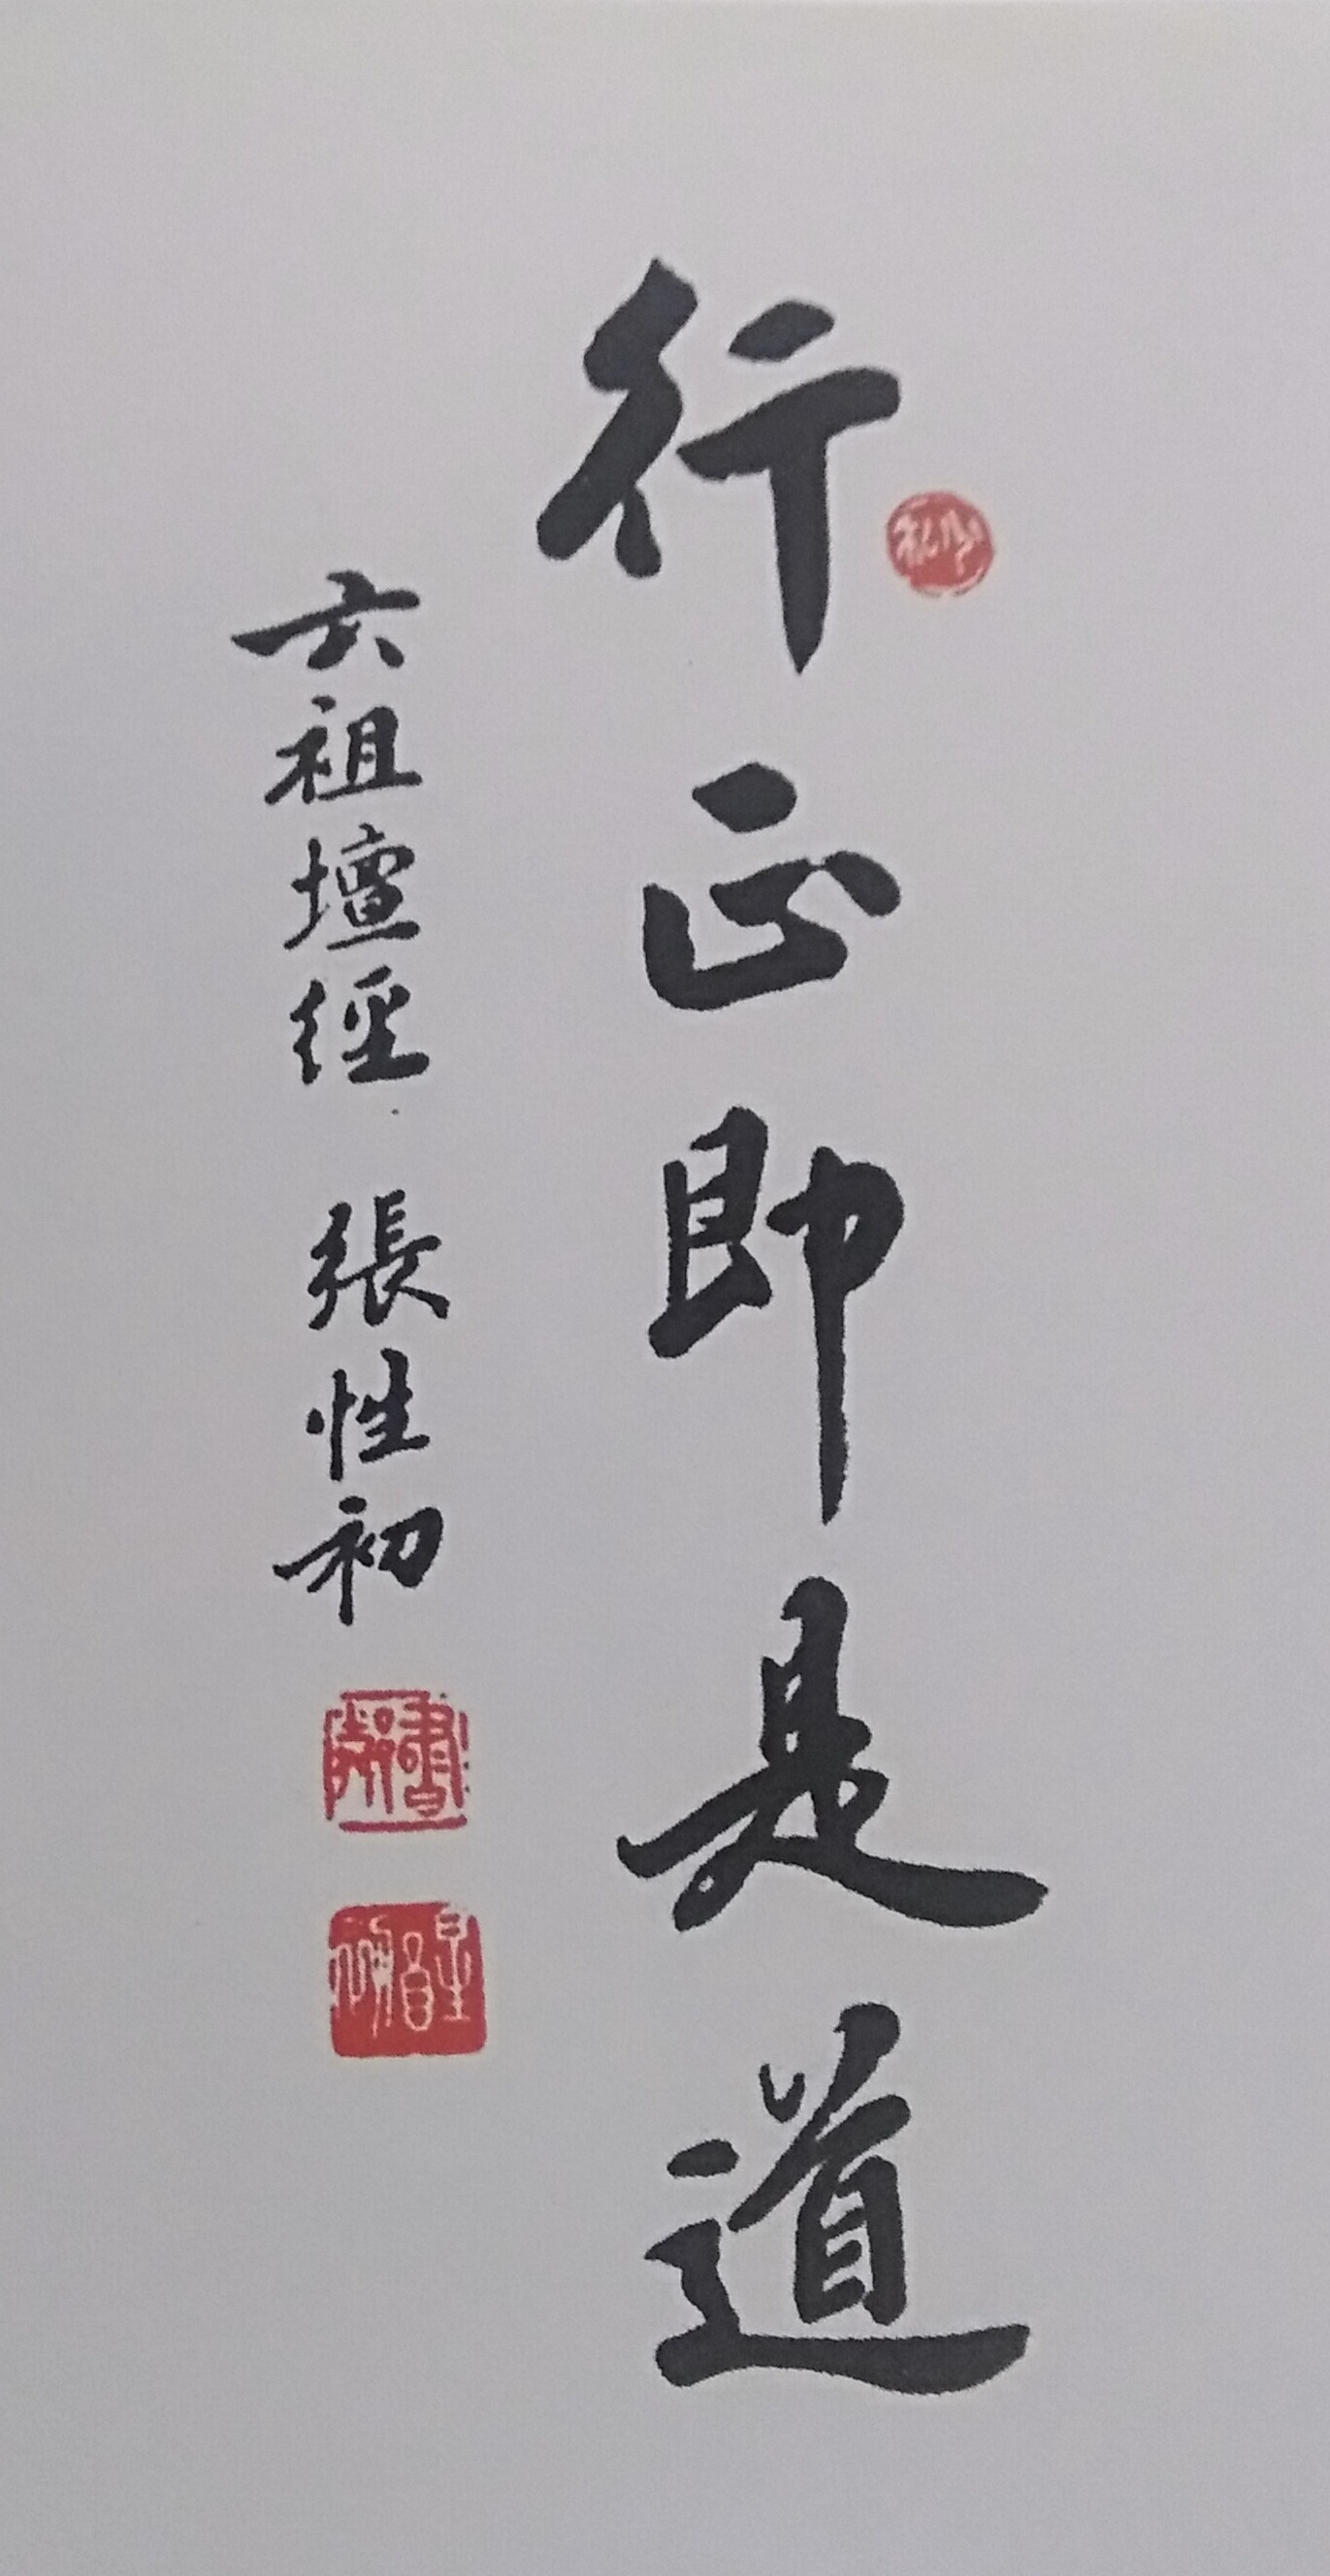 行正即是道
六祖壇經 張性初